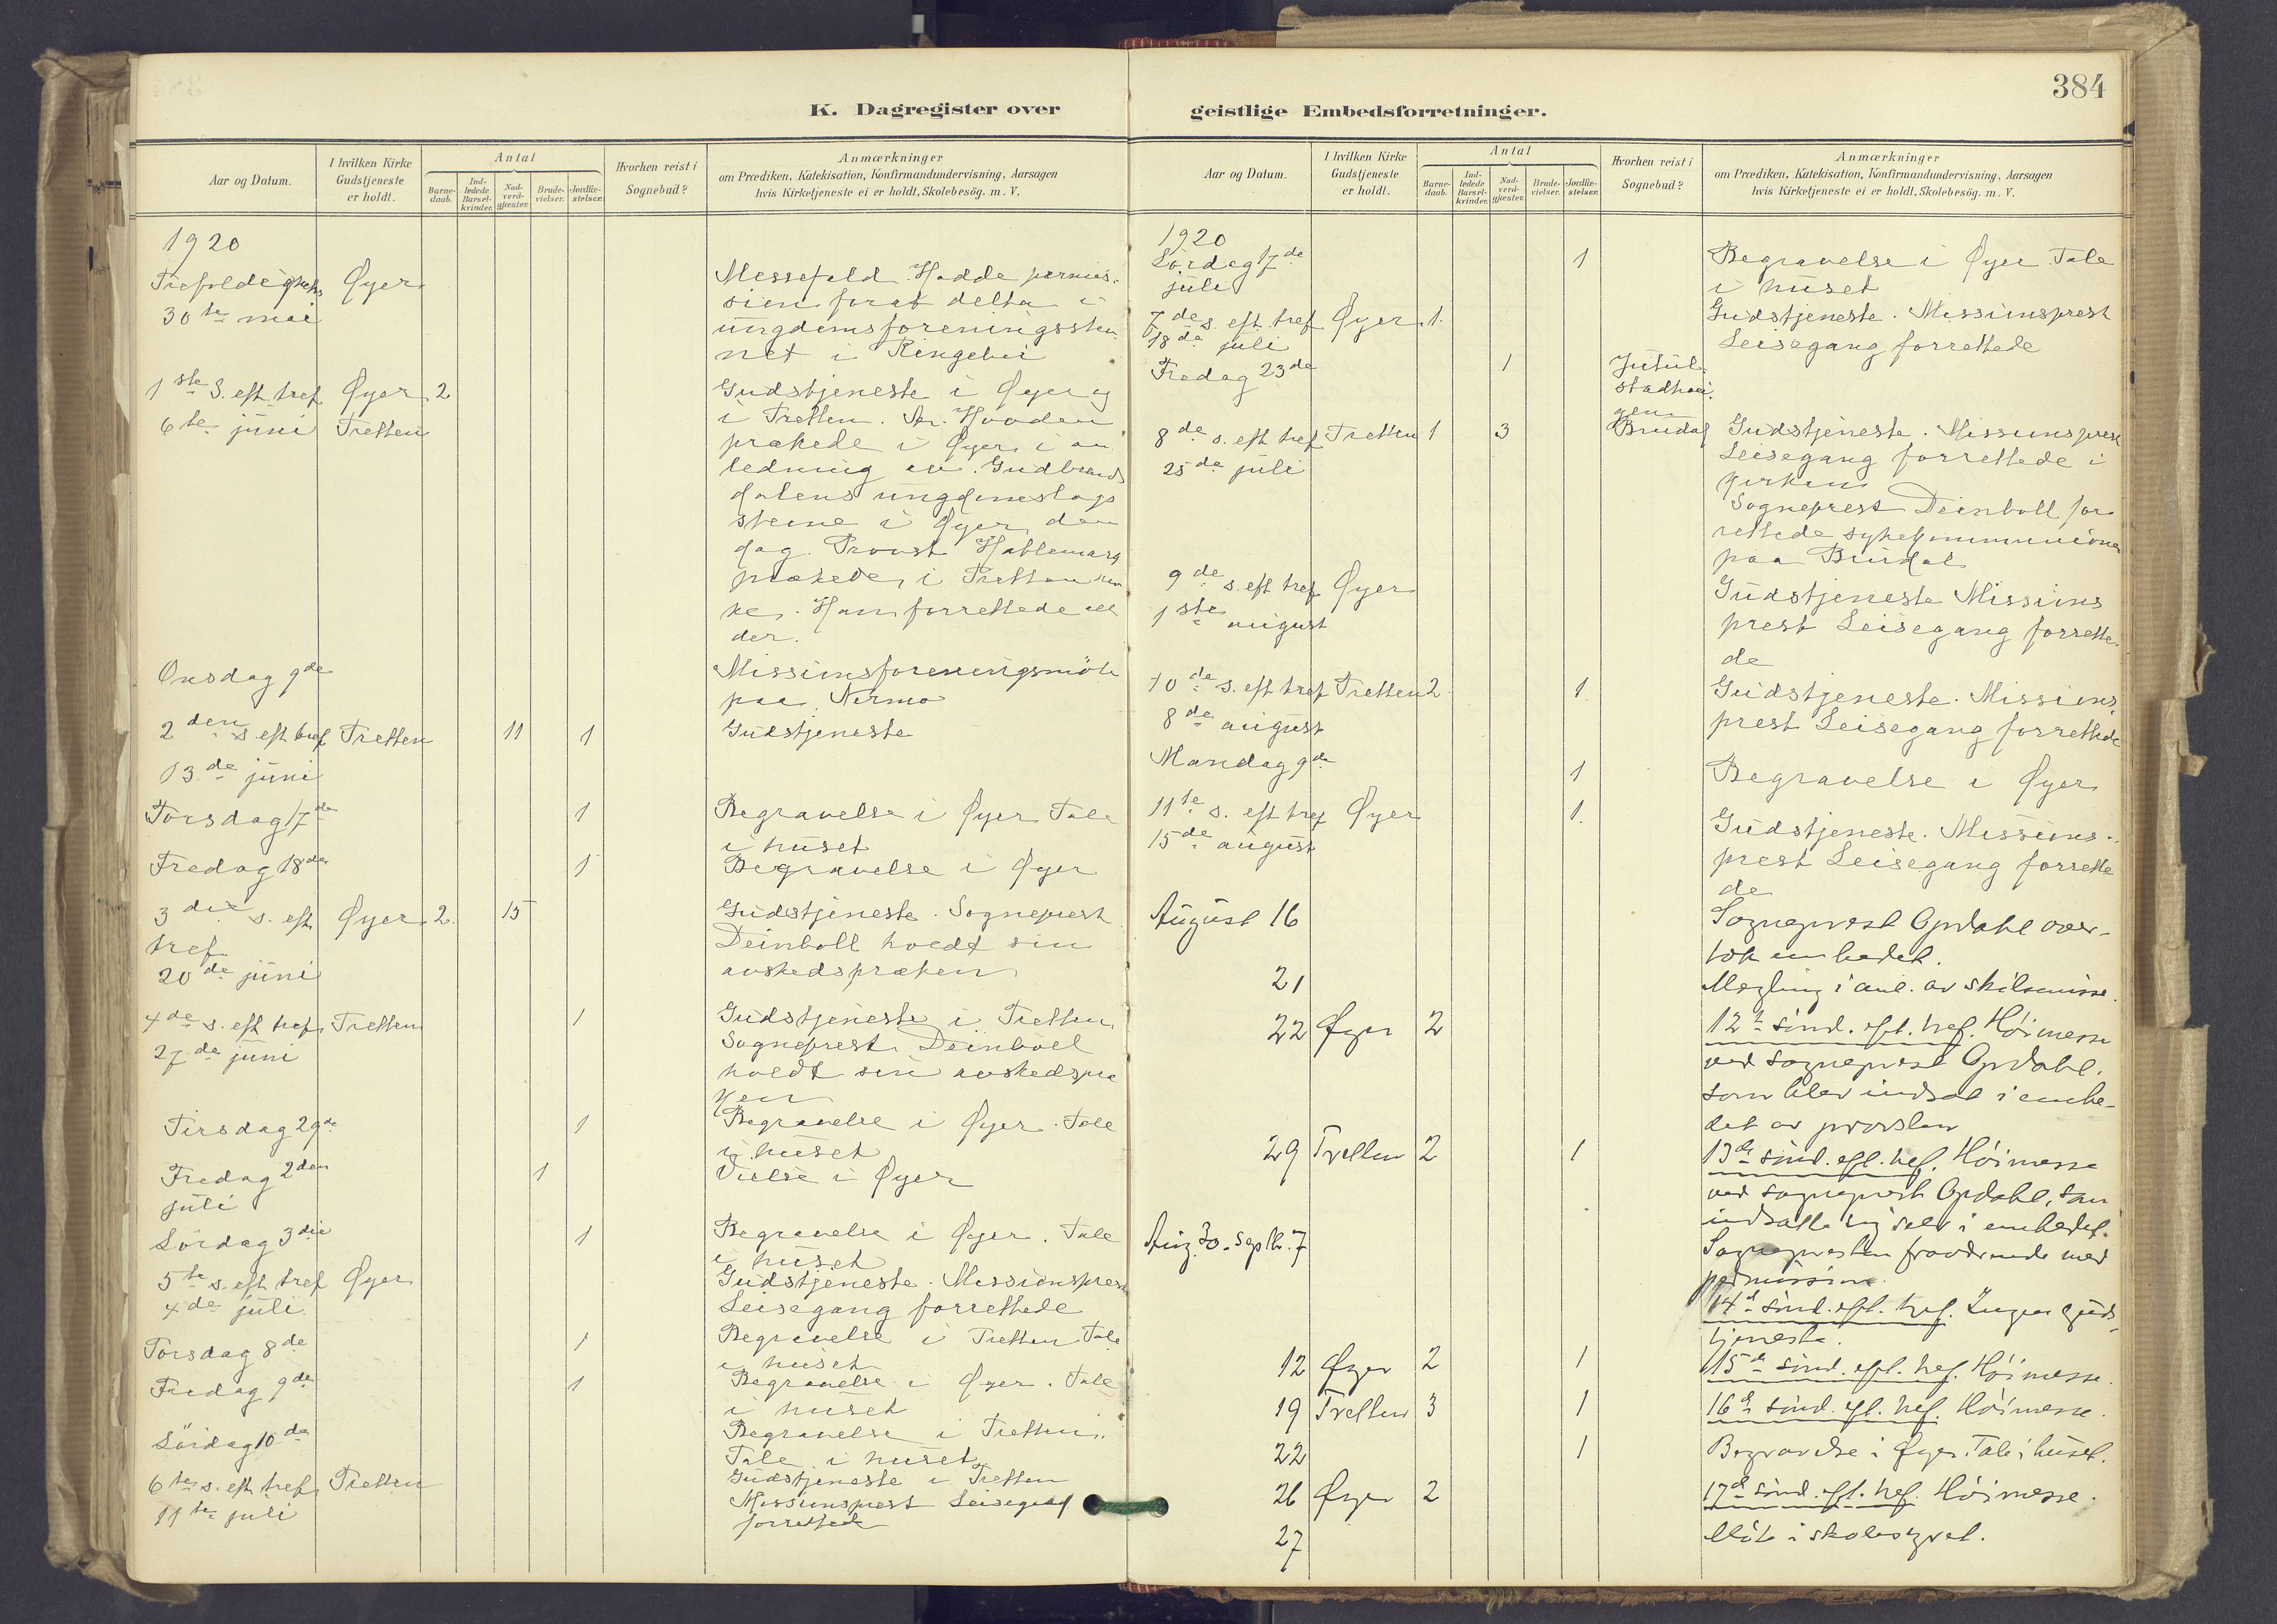 384
K. Dagregister over geistlige Embedsforretninger.
Aar og Datum.
I hvilken Kirke Gudstjeneste er holdt.
Antal
Barne-daab.
Ind-ledede Barsel-kvinder.
Nad-verd-gjæster.
Brude-vielser.
Jordfæ-stelser.
Hvorhen reist i Sognebud?
Anmærkninger
om Prædiken, Katekisation, Konfirmandundervisning, Aarsagen
hvis Kirketjeneste ei er holdt, Skolebesög. m. V.
1920
Øyer
Messefald. Hadde permis-
30te mai
sion for at delta i
ungdomsforeningsstev-
net i Ringebu
1ste S. eft. tref Øyer 2
Gudstjeneste i Øyer og
6te juni Tretten
i Tretten. Hovden
prækede i Øyer i an
ledning av Gudbrands
dalens ungdomslags
stevne i Øyer den
dag. Provst
prækede i Tretten kir
ke. Han forrettede all
der.
Onsdag 9de
Missionsforeningsmöte
paa Nermo
2den s. eft tref Tretten 11 1
Gudstjeneste
13de juni
Torsdag 17de 1
Begravelse i Øyer Tale
i huset
Fredag 18de 1
Begravelse i Øyer
3die s. eft Øyer 2. 15
Gudstjeneste. Sogneprest
tref
Deinboll holdt sin
20de juni
avskedspræken
4de s. eft tref Tretten 1
Gudstjeneste i Tretten.
27de juni
Sogneprest Deinboll
holdt sin avskedspræ
ken
Tirsdag 29de 1
Begravelse i Øyer. Tale
i huset
Fredag 2den 1
Vielse i Øyer
juli
Lördag 3die 1
Begravelse i Øyer. Tale
i huset
5te s. eft tref Øyer
Gudstjeneste. Missionsprest
4de juli
Leisegang forrettede
Torsdag 8de 1
Begravelse i Tretten Tale
i huset
Fredag 9de 1
Begravelse i Øyer. Tale
i huset
Lördag 10de
Begravelse i Tretten.
Tale i huset
6te s. eft tref Tretten
Gudstjeneste i Tretten
11te juli
Missionsprest Leisegang
forrettede
Aar og Datum.
I hvilken Kirke Gudstjeneste er holdt.
Antal
Barne-daab.
Ind-ledede Barsel-kvinder.
Nad-verd-gjæster.
Brude-vielser.
Jordfæ-stelser.
Hvorhen reist i Sognebud?
Anmærkninger
om Prædiken, Katekisation, Konfirmandundervisning, Aarsagen
hvis Kirketjeneste ei er holdt, Skolebesög. m. V.
1920
Lördag 17de 1
Begravelse i Øyer Tale
juli
i huset
7de s. eft. tref Øyer 1.
Gudstjeneste. Missionsprest
18de juli
Leisegang forrettede
Fredag 23de 1
8de s. eft tref Tretten 1 3
Gudstjeneste. Missionsprest
25de juli
Leisegang forrettede i
kirken
Sogneprest Deinboll for
rettede sykekommunionen
paa
9de s. eft tref Øyer
Gudstjeneste Missions
1ste august
prest Leisegang forrette-
de
10de s. eft tref Tretten 2. 1.
Gudstjeneste. Missions-
8de august
prest Leisegang forrettede
Mandag 9de 1
Begravelse i Øyer
11te s. eft tref Øyer 1.
Gudstjeneste. Missions-
15de august
prest Leisegang forrette
de
August 16
Sogneprest Opdahl over-
tok embedet.
21
Mægling i anl. av skilsmisse.
22 Øyer 2
12te sönd. eft. tref. Höimesse
ved sogneprest Opdahl.
som blev indsat i embe-
det av provsten
29 Tretten 2 1
13de sönd. eft. tref. Höimesse
ved sogneprest Opdahl, som
indsatte sig selv i embedet.
Aug. 30. - Septb. 7
Sognepresten fraværende med
permission.
14de sönd. eft. tref. Ingen guds-
tjeneste.
12 Øyer 2 1
15de sönd. eft. tref. Höimesse.
19 Tretten 3 1
16de sönd. eft. tref. Höimesse.
22 1
Begravelse i Øyer. Tale i huset.
26 Øyer 2
17de sönd. eft. tref. Höimesse.
27
Möte i skolestyret.